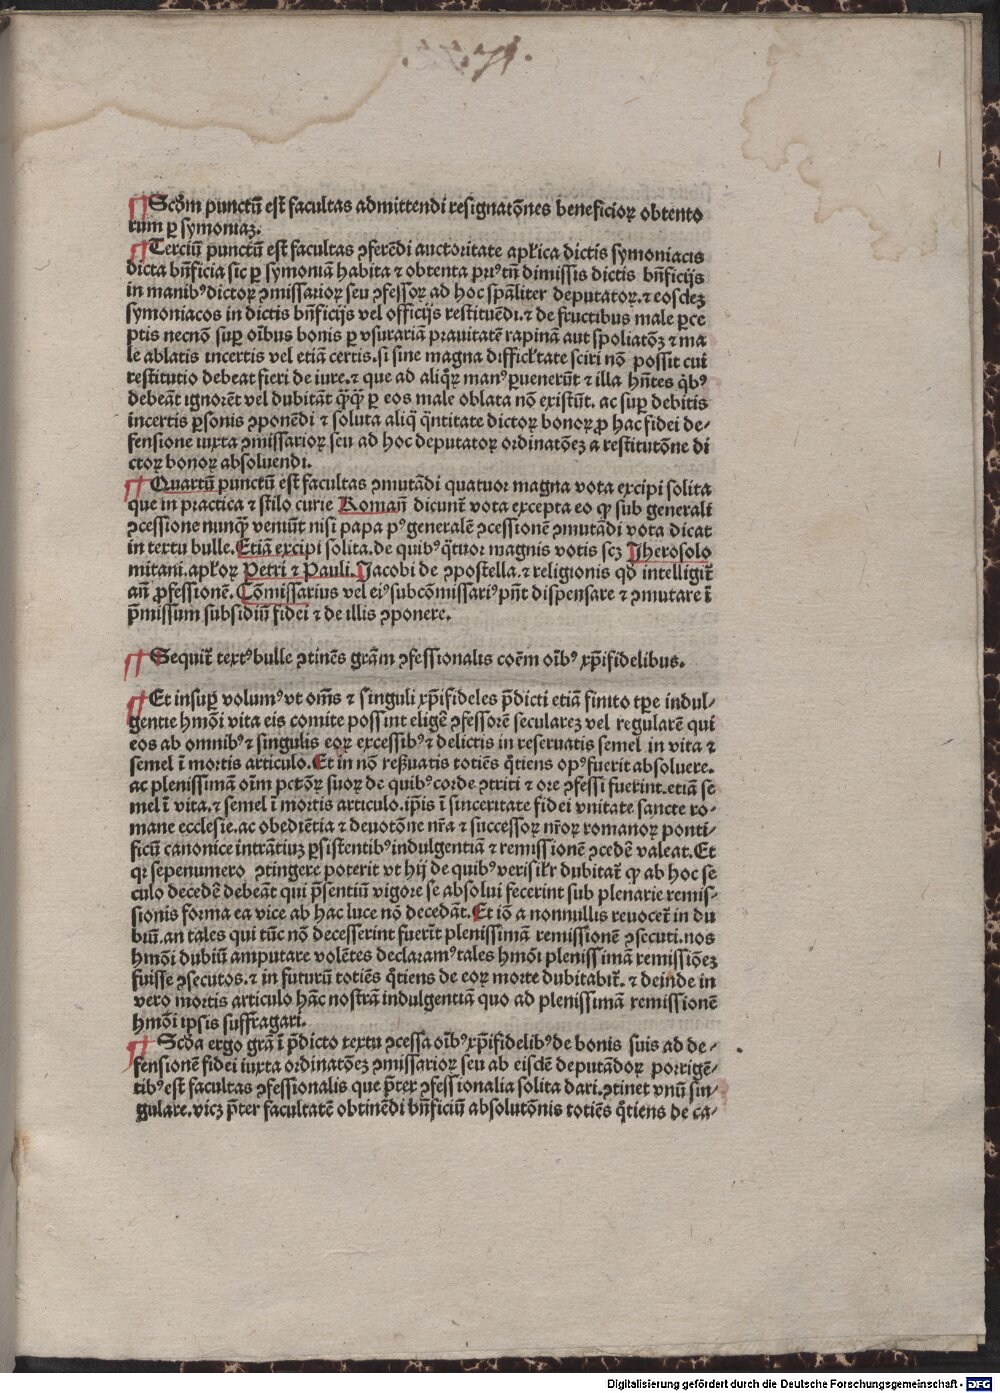 ¶ Scd̃m punctũ est facultas admittendi resignatõnes beneficioꝝ obtento
rum ꝑ symoniaꝫ.
¶ Terciũ punctũ est facultas ꝯferẽdi auctoritate apl̃ica dictis symoniacis
dicta bñficia sic ꝑ symoniã habita ⁊ obtenta priꝰ tñ dimissis dictis bñficijs
in manibꝰ dictoꝝ ꝯmissarioꝝ seu ꝯfessoꝝ ad hoc spãliter deputatoꝝ. ⁊ eosdeꝫ
symoniacos in dictis bñficijs vel officijs restituẽdi. ⁊ de fructibus male ꝑce
ptis necnõ suꝑ oĩbus bonis ꝑ vsurariã prauitatẽ rapinã aut spoliatõꝫ ⁊ ma
le ablatis incertis vel etiã certis. si sine magna difficl̃tate sciri nõ possit cui
restitutio debeat fieri de iure. ⁊ que ad aliq̃ꝝ manꝰ ꝑuenerũt ⁊ illa hñtes q̃bꝰ
debeãt ignorẽt vel dubitãt q̃q̃ ꝑ eos male oblata nõ existũt. ac suꝑ debitis
incertis ꝑsonis ꝯponẽdi ⁊ soluta aliq̃ q̃ntitate dictoꝝ bonoꝝ ꝓ hac fidei de⸗
fensione iuxta ꝯmissarioꝝ seu ad hoc deputatoꝝ ordinatõeꝫ a restitutõne di
ctoꝝ bonoꝝ absoluendi.
¶ Quartũ punctũ est facultas ꝯmutãdi quatuor magna vota excipi solita
que in practica ⁊ stilo curie Romañ dicunt̃ vota excepta eo ꝙ sub generali
ꝯcessione nunq̃ȝ veniũt nisi papa pꝰ generalẽ ꝯcessionẽ ꝯmutãdi vota dicat
in textu bulle. Etiã excipi solita. de quibꝰ q̃tuor magnis votis scꝫ Jherosolo
mitani. apl̃oꝝ Petri ⁊ Pauli. Jacobi de ꝯpostella. ⁊ religionis qd̃ intelligit̃
añ ꝓfessionẽ. Cõmissarius vel eiꝰ subcõmissariꝰ pñt dispensare ⁊ ꝯmutare ĩ
p̃missum subsidiũ fidei ⁊ de illis ꝯponere.
¶ Sequit̃ textꝰ bulle ꝯtinẽs grãm ꝯfessionalis coẽm oĩbꝰ xp̃ifidelibus.
¶ Et insuꝑ volumꝰ vt om̃s ⁊ singuli xp̃ifideles p̃dicti etiã finito tp̃e indul⸗
gentie hmõi vita eis comite possint eligẽ ꝯfessorẽ seculareꝫ vel regularẽ qui
eos ab omnibꝰ ⁊ singulis eoꝝ excessibꝰ ⁊ delictis in reseruatis semel in vita ⁊
semel ĩ mortis articulo. Et in nõ reßuatis totiẽs q̃tiens opꝰ fuerit absoluere.
ac plenissimã oĩm pctõꝝ suoꝝ de quibꝰ corde ꝯtriti ⁊ ore ꝯfessi fuerint. etiã se
mel ĩ vita. ⁊ semel ĩ mortis articulo. ip̃is ĩ sinceritate fidei vnitate sancte ro⸗
mane ecclesie. ac obediẽtia ⁊ deuotõne nr̃a ⁊ successoꝝ nr̃oꝝ romanoꝝ ponti⸗
ficũ canonice intrãtiuꝫ ꝑsistentibꝰ indulgentiã ⁊ remissionẽ ꝯcedẽ valeat. Et
qꝛ sepenumero ꝯtingere poterit vt hij de quibꝰ verisil̃r dubitat̃ ꝙ ab hoc se
culo decedẽ debeãt qui p̃sentiũ vigore se absolui fecerint sub plenarie remis⸗
sionis forma ea vice ab hac luce nõ decedãt. Et iõ a nonnullis reuocet̃ in du
biũ. an tales qui tũc nõ decesserint fuerĩt plenissimã remissionẽ ꝯsecuti. nos
hmõi dubiũ amputare volẽtes declaramꝰ tales hmõi plenissimã remissiõeꝫ
fuisse ꝯsecutos. ⁊ in futurũ totiẽs q̃tiens de eoꝝ morte dubitabit̃. ⁊ deinde in
vero mortis articulo hãc nostrã indulgentiã quo ad plenissimã remissionẽ
hmõi ipsis suffragari.
¶ Scd̃a ergo grã ĩ p̃dicto textu ꝯcessa oĩbꝰ xp̃ifidelibꝰ de bonis suis ad de⸗
fensionẽ fidei iuxta ordinatõeꝫ ꝯmissarioꝝ seu ab eisdẽ deputãdoꝝ porrigẽ⸗
tibꝰ est facultas ꝯfessionalis que p̃ter ꝯfessionalia solita dari. ꝯtinet vnũ sin⸗
gulare. vicꝫ p̃ter facultatẽ obtinẽdi bñficiũ absolutõnis totiẽs q̃tiens de ca⸗
Digitalisierung gefördert durch die Deutsche Forschungsgemeinschaft - DFG